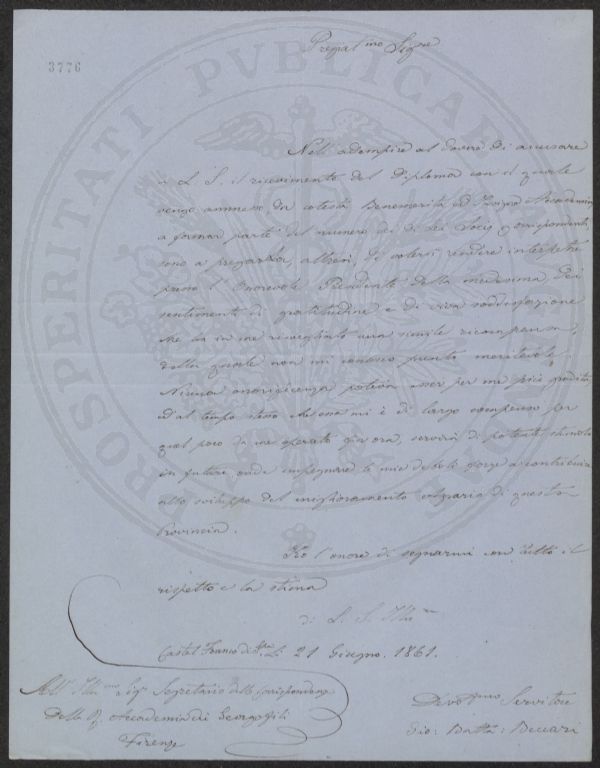 3776
Pregiat.mo Sig.re
Nell'adempire al dovere di accusare
a L. S. il ricevimento del Diploma con il quale
vengo ammesso da cotesta Benemerita ed Accademia
a formar parte del numero dei di Lei Socj Corrispondenti,
sono a pregarla, altresì, di volersi rendere interpetre
presso l'Onorevole Presidente della medesima, dei
sentimenti di gratitudine e di viva soddisfazione
che ha in me risvegliato una simile ricompensa,
della quale non mi conosco punto meritevole.
Niuna onorificenza poteva esser per me più gradita,
ed al tempo stesso che essa mi è di largo compenso per
quel poco da me operato fin ora, servirà di potente stimolo
in futuro onde impegnare le mie deboli forze a contribuire
allo sviluppo del miglioramento agrario di questa
Provincia.
Ho l'onore di segnarmi con tutto il
rispetto e la stima
di L. S. Ill.ma
Castel Franco di S. 21 Giugno 1861.
All' Ill.mo Sig.r Segretario delle Corrispondenze
Della R. Accademia dei Georgofili
Firenze
Devot.mo Servitore
Gio: Batta: Beccari
PROSPERITATI PUBLICAE